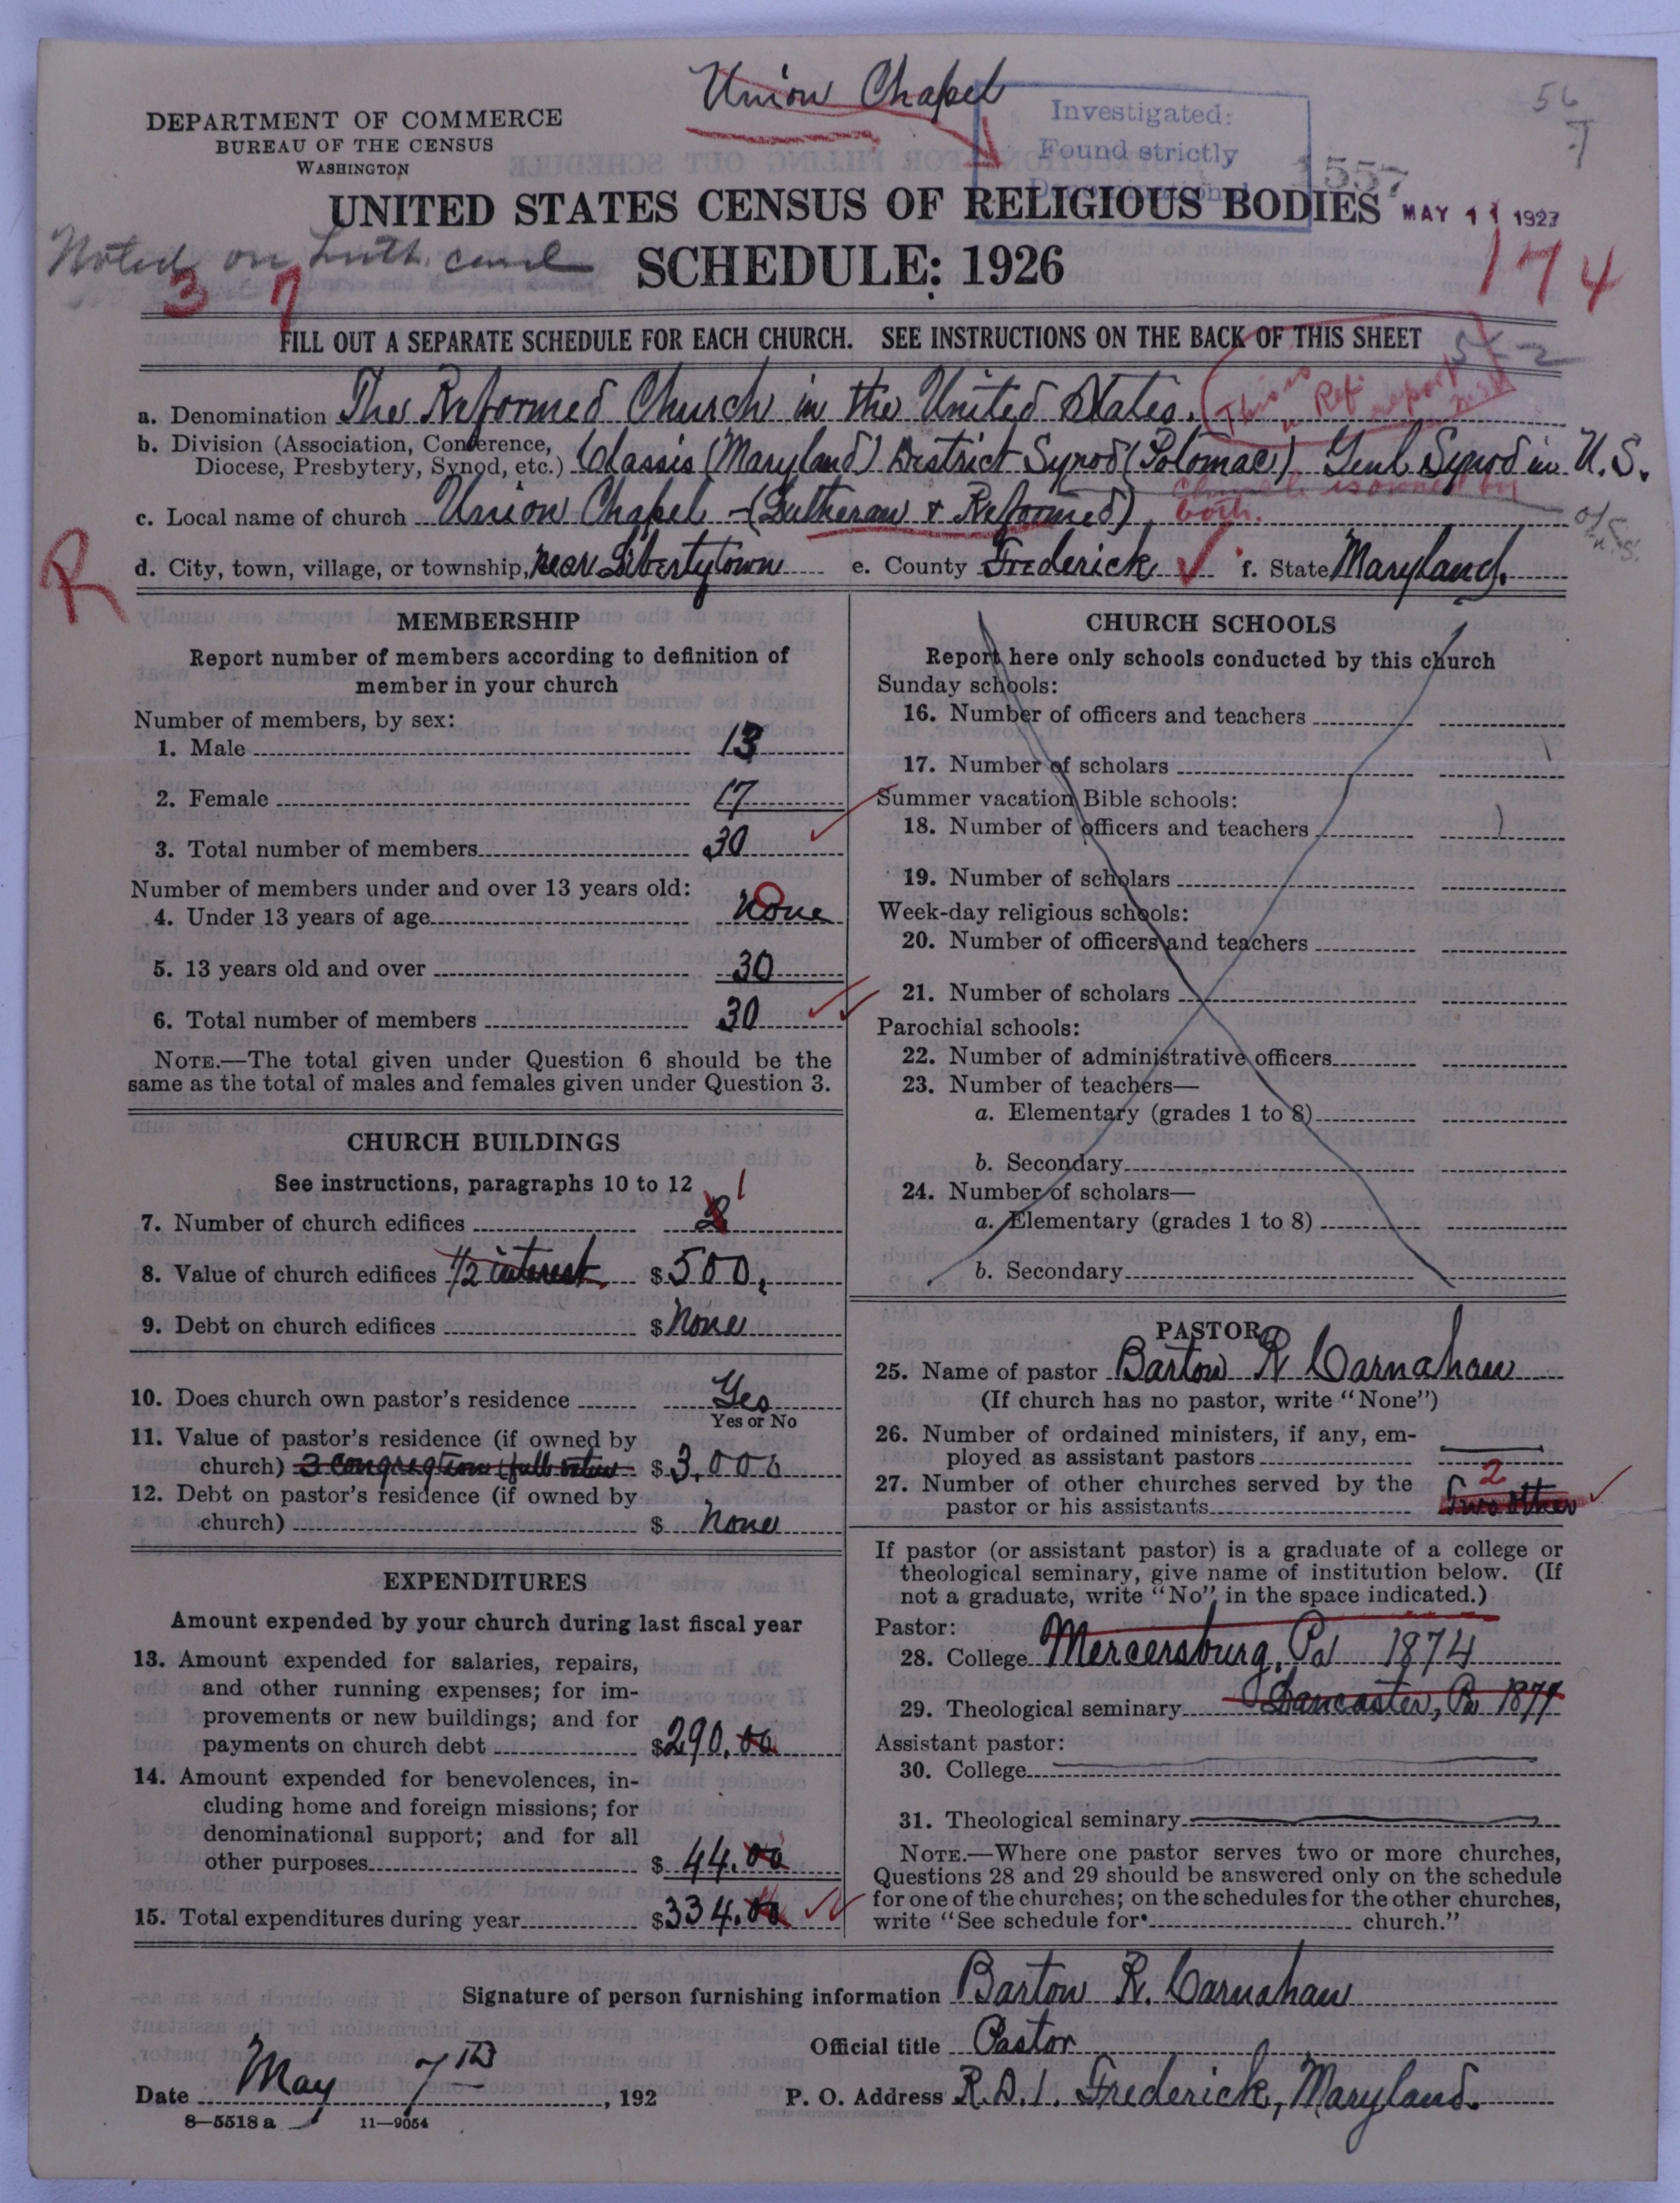 Union Chapel
56
7
DEPARTMENT OF COMMERCE
BUREAU OF THE CENSUS
WASHINGTON
Investigated:
Found strictly
Denominational
1557
UNITED STATES CENSUS OF RELIGIOUS BODIES
MAY 11 1927
Noted on Luth. card
SCHEDULE: 1926
3 7
174
FILL OUT A SEPARATE SCHEDULE FOR EACH CHURCH. SEE INSTRUCTIONS ON THE BACK OF THIS SHEET
a. Denomination The Reformed Church in the United States. (This is Ref. report
b. Division (Association, Conference,
Diocese, Presbytery, Synod, etc.) Classis (Maryland) District Synod (Potomac) Genl Synod in U.S.
Church is owned by
both.
c. Local name of church Union Chapel - (Lutheran & Reformed)
R
d. City, town, village, or township, near Libertytown e. County Frederick ✓ f. State Maryland.
MEMBERSHIP
Report number of members according to definition of
member in your church
Number of members, by sex:
1. Male 13
2. Female 17
3. Total number of members 30
Number of members under and over 13 years old:
4. Under 13 years of age none 0
5. 13 years old and over 30
6. Total number of members 30
NOTE.—The total given under Question 6 should be the
same as the total of males and females given under Question 3.
CHURCH BUILDINGS
See instructions, paragraphs 10 to 12
7. Number of church edifices 1
8. Value of church edifices 1/2 interest $ 500.
9. Debt on church edifices $ None
10. Does church own pastor's residence Yes
Yes or No
11. Value of pastor's residence (if owned by
church) 3 congregations (full value $ 3,000
12. Debt on pastor's residence (if owned by
church) $ None
EXPENDITURES
Amount expended by your church during last fiscal year
13. Amount expended for salaries, repairs,
and other running expenses; for im-
provements or new buildings; and for
payments on church debt $ 290.00
14. Amount expended for benevolences, in-
cluding home and foreign missions; for
denominational support; and for all
other purposes $ 44.00
15. Total expenditures during year $ 334.00
CHURCH SCHOOLS
Report here only schools conducted by this church
Sunday schools:
16. Number of officers and teachers
17. Number of scholars
Summer vacation Bible schools:
18. Number of officers and teachers
19. Number of scholars
Week-day religious schools:
20. Number of officers and teachers
21. Number of scholars
Parochial schools:
22. Number of administrative officers
23. Number of teachers—
a. Elementary (grades 1 to 8)
b. Secondary
24. Number of scholars—
a. Elementary (grades 1 to 8)
b. Secondary
PASTOR
25. Name of pastor Barton R Carnahan
(If church has no pastor, write "None")
26. Number of ordained ministers, if any, em-
ployed as assistant pastors
27. Number of other churches served by the
2
pastor or his assistants Two other
If pastor (or assistant pastor) is a graduate of a college or
theological seminary, give name of institution below. (If
not a graduate, write "No" in the space indicated.)
Pastor:
28. College Mercersburg, Pa 1874
29. Theological seminary Lancaster, Pa 1877
Assistant pastor:
30. College
31. Theological seminary
NOTE.—Where one pastor serves two or more churches,
Questions 28 and 29 should be answered only on the schedule
for one of the churches; on the schedules for the other churches,
write "See schedule for church."
Signature of person furnishing information Barton R. Carnahan
Official title Pastor
Date May 7th, 192
P. O. Address R.D.1. Frederick, Maryland.
8—5518 a 11—9054